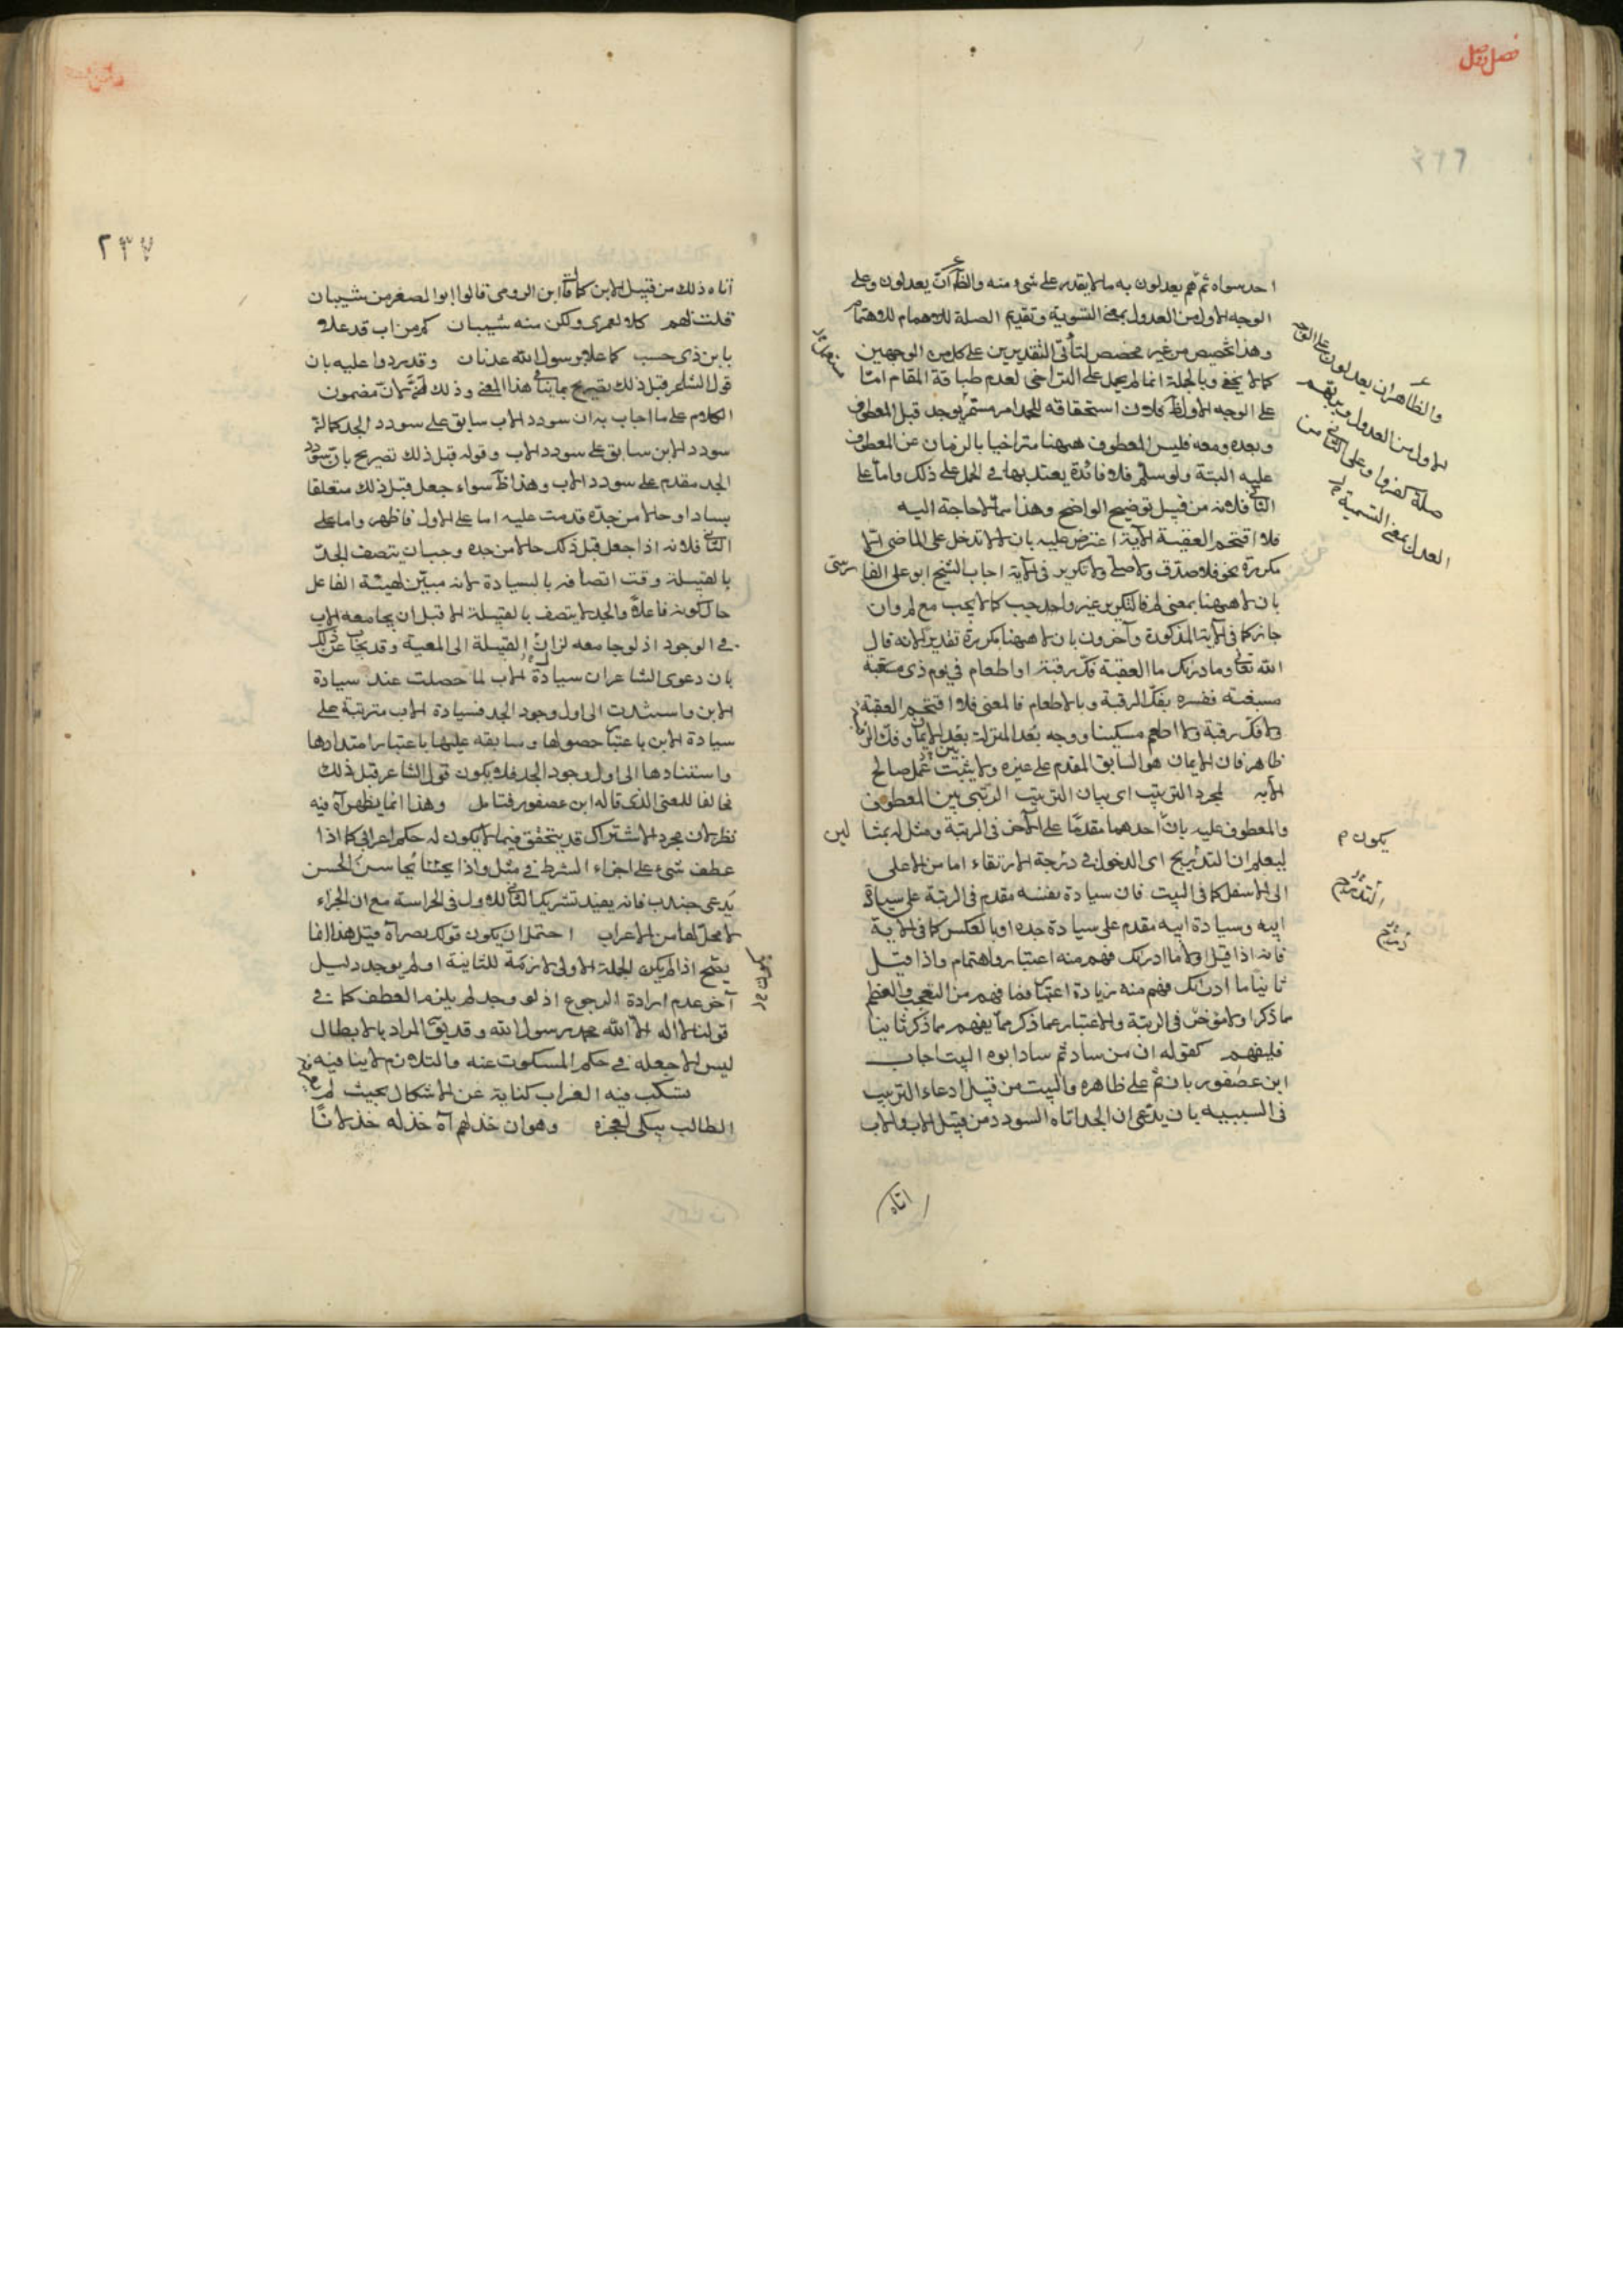 فصل وصل
احد سواه ثم هم يعدلون به ما لا يقدر على شئ منه والظ ان يعدلون وعلى
الوجه الاول من العدول بمعنى التسوية وتقديم الصلة للاهتمام
وهذا تخصيص من غير مخصص لتأتى التقديرين على كل من الوجهين
كما لا يخفى وبالجملة انما لم يحمل على التراخى لعدم طباقة المقام امّا
على الوجه الاول فظ فلان استحقاقه للحمد امر مستمر يوجد قبل المعطوف
وبعده ومعه فليس المعطوف ههنا متراخيا بالزمان عن المعطوف
عليه البتة ولو سلم فلا فائدة يعتد بها فى الحمل على ذلك واما على
الثانى فلانه من قبيل توضيح الواضح وهذا مما لا حاجة اليه
فلا اقتحم العقبة الآية اعترض عليه بان لا لا تدخل على الماضى الا
مكررة نحو فلا صدق ولا صلى ولا تكرير فى الآية اجاب الشيخ ابو على الفا رسى
بان لا ههنا بمعنى لم فالتكرير غير واجب كما لا يجب مع لم وان
جاز كما فى الآية المذكورة وآخرون بان لا ههنا مكررة تقديرا لانه قال
الله تعالى وما ادريك ما العقبة فك رقبة او اطعام في يوم ذى مسغبة
مسبغته ففسره بفك الرقبة وبالاطعام فالمعنى فلا اقتحم العقبة
ولا فك رقبة ولا اطعم مسكينا ووجه بُعد المنزلة بين الايمان وفك الرقبة
ظاهر فان الايمان هو السابق المقدم على غيره ولا يثبت عمل صالح
الا به لمجرد الترتيب اى بيان الترتيب الرتبى بين المعطوف
والمعطوف عليه بانّ احدهما مقدمًا على الآخر فى الرتبة ومثل له بمثا لين
ليعلم ان التدريج اى الدخول فى درجة الارتقاء اما من الاعلى
الى الاسفل كما فى البيت فان سيادة نفسه مقدم فى الرتبة على سيادة
ابيه وسيادة ابيه مقدم على سيادة جده او بالعكس كما فى الآية
فانه اذا قيل اولا ما ادريك فهم منه اعتبار واهتمام واذا قيل
ثانيا ما ادريك فهم منه زيادة اعتبار فما فهم من التعجب والتعظيم
مما ذكر اولا مؤخر فى الرتبة والاعتبار عما ذكر مما يفهم مما ذكر ثانيا
فليفهم كقوله ان من ساد ثم ساد ابوه البيت اجاب
ابن عصفور بان ثم على ظاهره والبيت من قبيل ادعاء الترتيب
فى السببيه بان يدعى ان الجد اتاه السودد من قبل الاب والاب
اتاه
والظاهر ان يعدلون على الوجه
الاول من العدول وبربهم
صلة كفروا وعلى الثانى من
العدل بمعنى التسوية
يكون م
التدرج
درج
٢٣٧
اتاه ذلك من قبل الابن كما قال ابن الرومى قالوا ابو الصقر من شيبان
قلت لهم كلا لعمرى ولكن منه شيبان كم من اب قد علا
بابن ذى حسب كما علا برسول الله عدنان وقد ردوا عليه بان
قول الشاعر قبل ذلك تصريح بما ينافى هذا المعنى وذلك لان مضمون
الكلام على ما اجاب به ان سودد الاب سابق على سودد الجد كما ان
سودد الابن سابق على سودد الاب وقوله قبل ذلك تصريح بان سودد
الجد مقدم على سودد الاب وهذا ظ سواء جعل قبل ذلك متعلقا
بساد او حالا من جدّه قدمت عليه اما على الاول فاظهر واما على
الثانى فلانه اذا جعل قبل ذلك حالا من جده وجب ان يتصف الجد
بالقبيلة وقت اتصافه بالسيادة لانه مبيّن لهيئة الفاعل
حال كونه فاعلاً والجد لا يتصف بالقبيلة الا قبل ان يجامعه الاب
فى الوجود اذ لو جامعه لزالت القبيلة الى المعية وقد يجاب عن ذلك
بان دعوى الشاعر ان سيادة الاب لما حصلت عند سيادة
الابن واستندت الى اول وجود الجد فسيادة الاب مترتبة على
سيادة الابن باعتبار حصولها وسابقه عليها باعتبار امتدادها
واستنادها الى اول وجود الجد فلا يكون قول الشاعر قبل ذلك
مخالفا للمعنى الذى قاله ابن عصفور فتامل وهذا انما يظهر آه فيه
نظر لان مجرد الاشتراك قد يتحقق فيما لا يكون له حكم اعرابى كما اذا
عطف شئ على اجزاء الشرط فى مثل واذا يحاس الحيس
يدعى جندب فانه يفيد تشريك الثانى للاول فى الجزائية مع ان الجزاء
لا محل لها من الاعراب احتمل ان يكون قولك بصر آه قيل هذا انما
يصح اذا لم يكن الجملة الاولى لازمة للثانية او لم يوجد دليل
آخر عدم ارادة الرجوع اذ لو وجد لم يلزم العطف كما فى
قولنا لا اله الا الله محمد رسول الله وقد يق المراد بالابطال
ليس الا جعله فى حكم المسكوت عنه والتلازم لا ينافيه
تسكب فيه العبرات كناية عن الاشكال بحيث
الطالب يبكى لعجزه وهوان خذلهم آه خذله خذلانًا